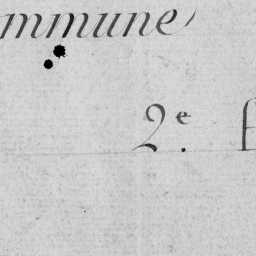 mmune
2.e